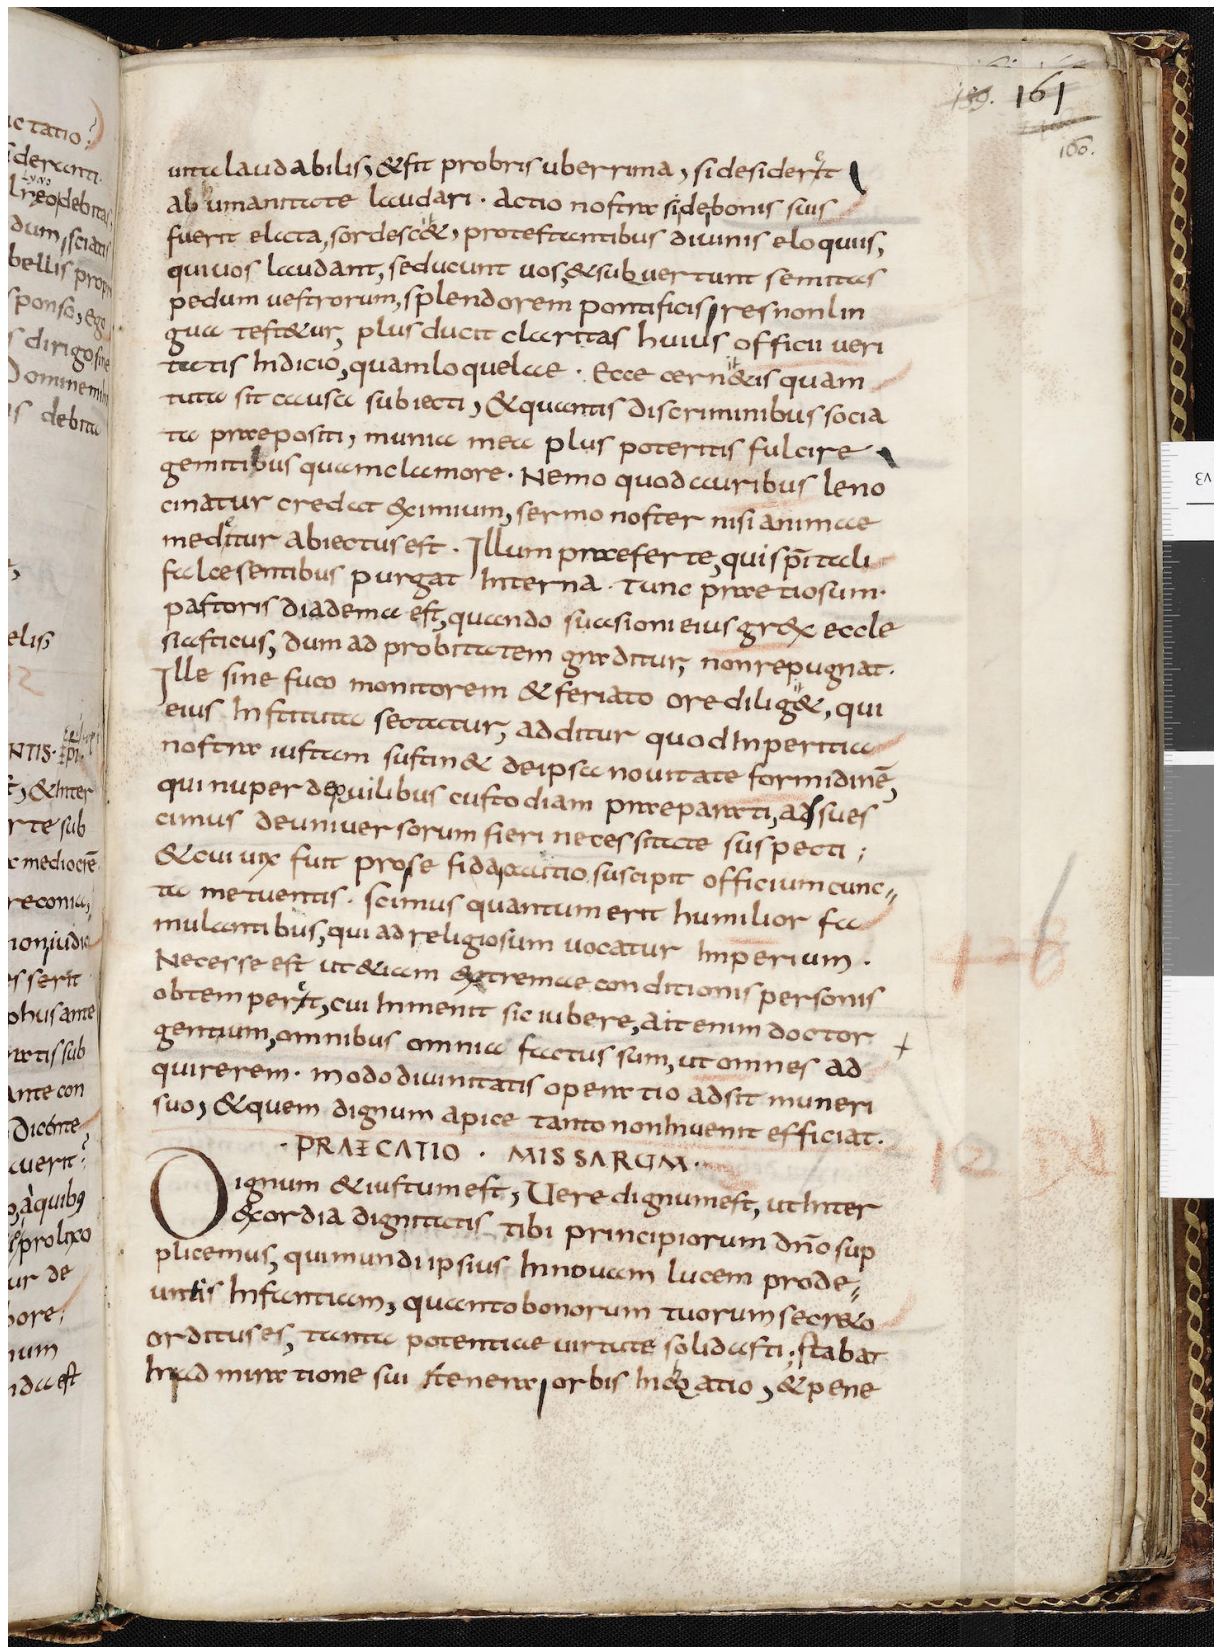 161
160.
uita laudabilis, & fit probris uberrima, si desideret
ab umanitate laudari. actio nostra si de bonis suis
fuerit elacta, sordesc&, protestantibus diuinis eloquiis,
qui uos laudant, seducunt uos, & subuertunt semitas
pedum uestrorum, splendorem pontificis res non lin
gua test&ur, plus ducit claritas huius officii ueri
tatis Indicio, quam loquelae. Ecce cern&is quam
tuta sit causa subiecti, & quantis discriminibus socia
ta praepositi, munia mea plus poteritis fulcire
gemitibus quam clamore. Nemo quod auribus leno
cinatur credat eximium, sermo noster nisi animae
medetur abiectus est. Illum praeferte, qui sp̄itali
falce sentibus purgat Interna. tunc praetiosum.
pastoris diadema est, quando suasioni eius grex eccle
siasticus, dum ad probitatem graditur, non repugnat.
Ille sine fuco monitorem & feriato ore dilig&, qui
eius Instituta sectatur, additur quod Inperitia
nostra iustam sustin& de ipsa nouitate formidinē,
qui nuper de uilibus custodiam praeparati, adsues
cimus de uniuersorum fieri necessitate suspecti;
& cui uix fuit pro se fida cautio suscipit officium cunc
ta metuentis. scimus quantum erit humilior fa
mulantibus, qui ad religiosum uocatur Imperium.
Necesse est ut &iam extremae conditionis personis
obtemperet, cui Inmenit sic iubere, ait enim doctor
gentium, omnibus omnia factus sum, ut omnes ad
quirerem. modo diuinitatis operatio adsit muneri
suo, & quem dignum apice tanto non Inuenit efficiat.
· PRAECATIO · MISSARUM ·
Dignum & iustum est, Uere dignum est, ut Inter
exordia dignitatis tibi principiorum dn̄o sup
plicemus, qui mundi ipsius Innouam lucem prode
untis Infantiam, quanto bonorum tuorum secr&o
orditus es, tanta potentiae uirtute solidasti; stabat
In admiratione sui tenera orbis Incoatio, & pene